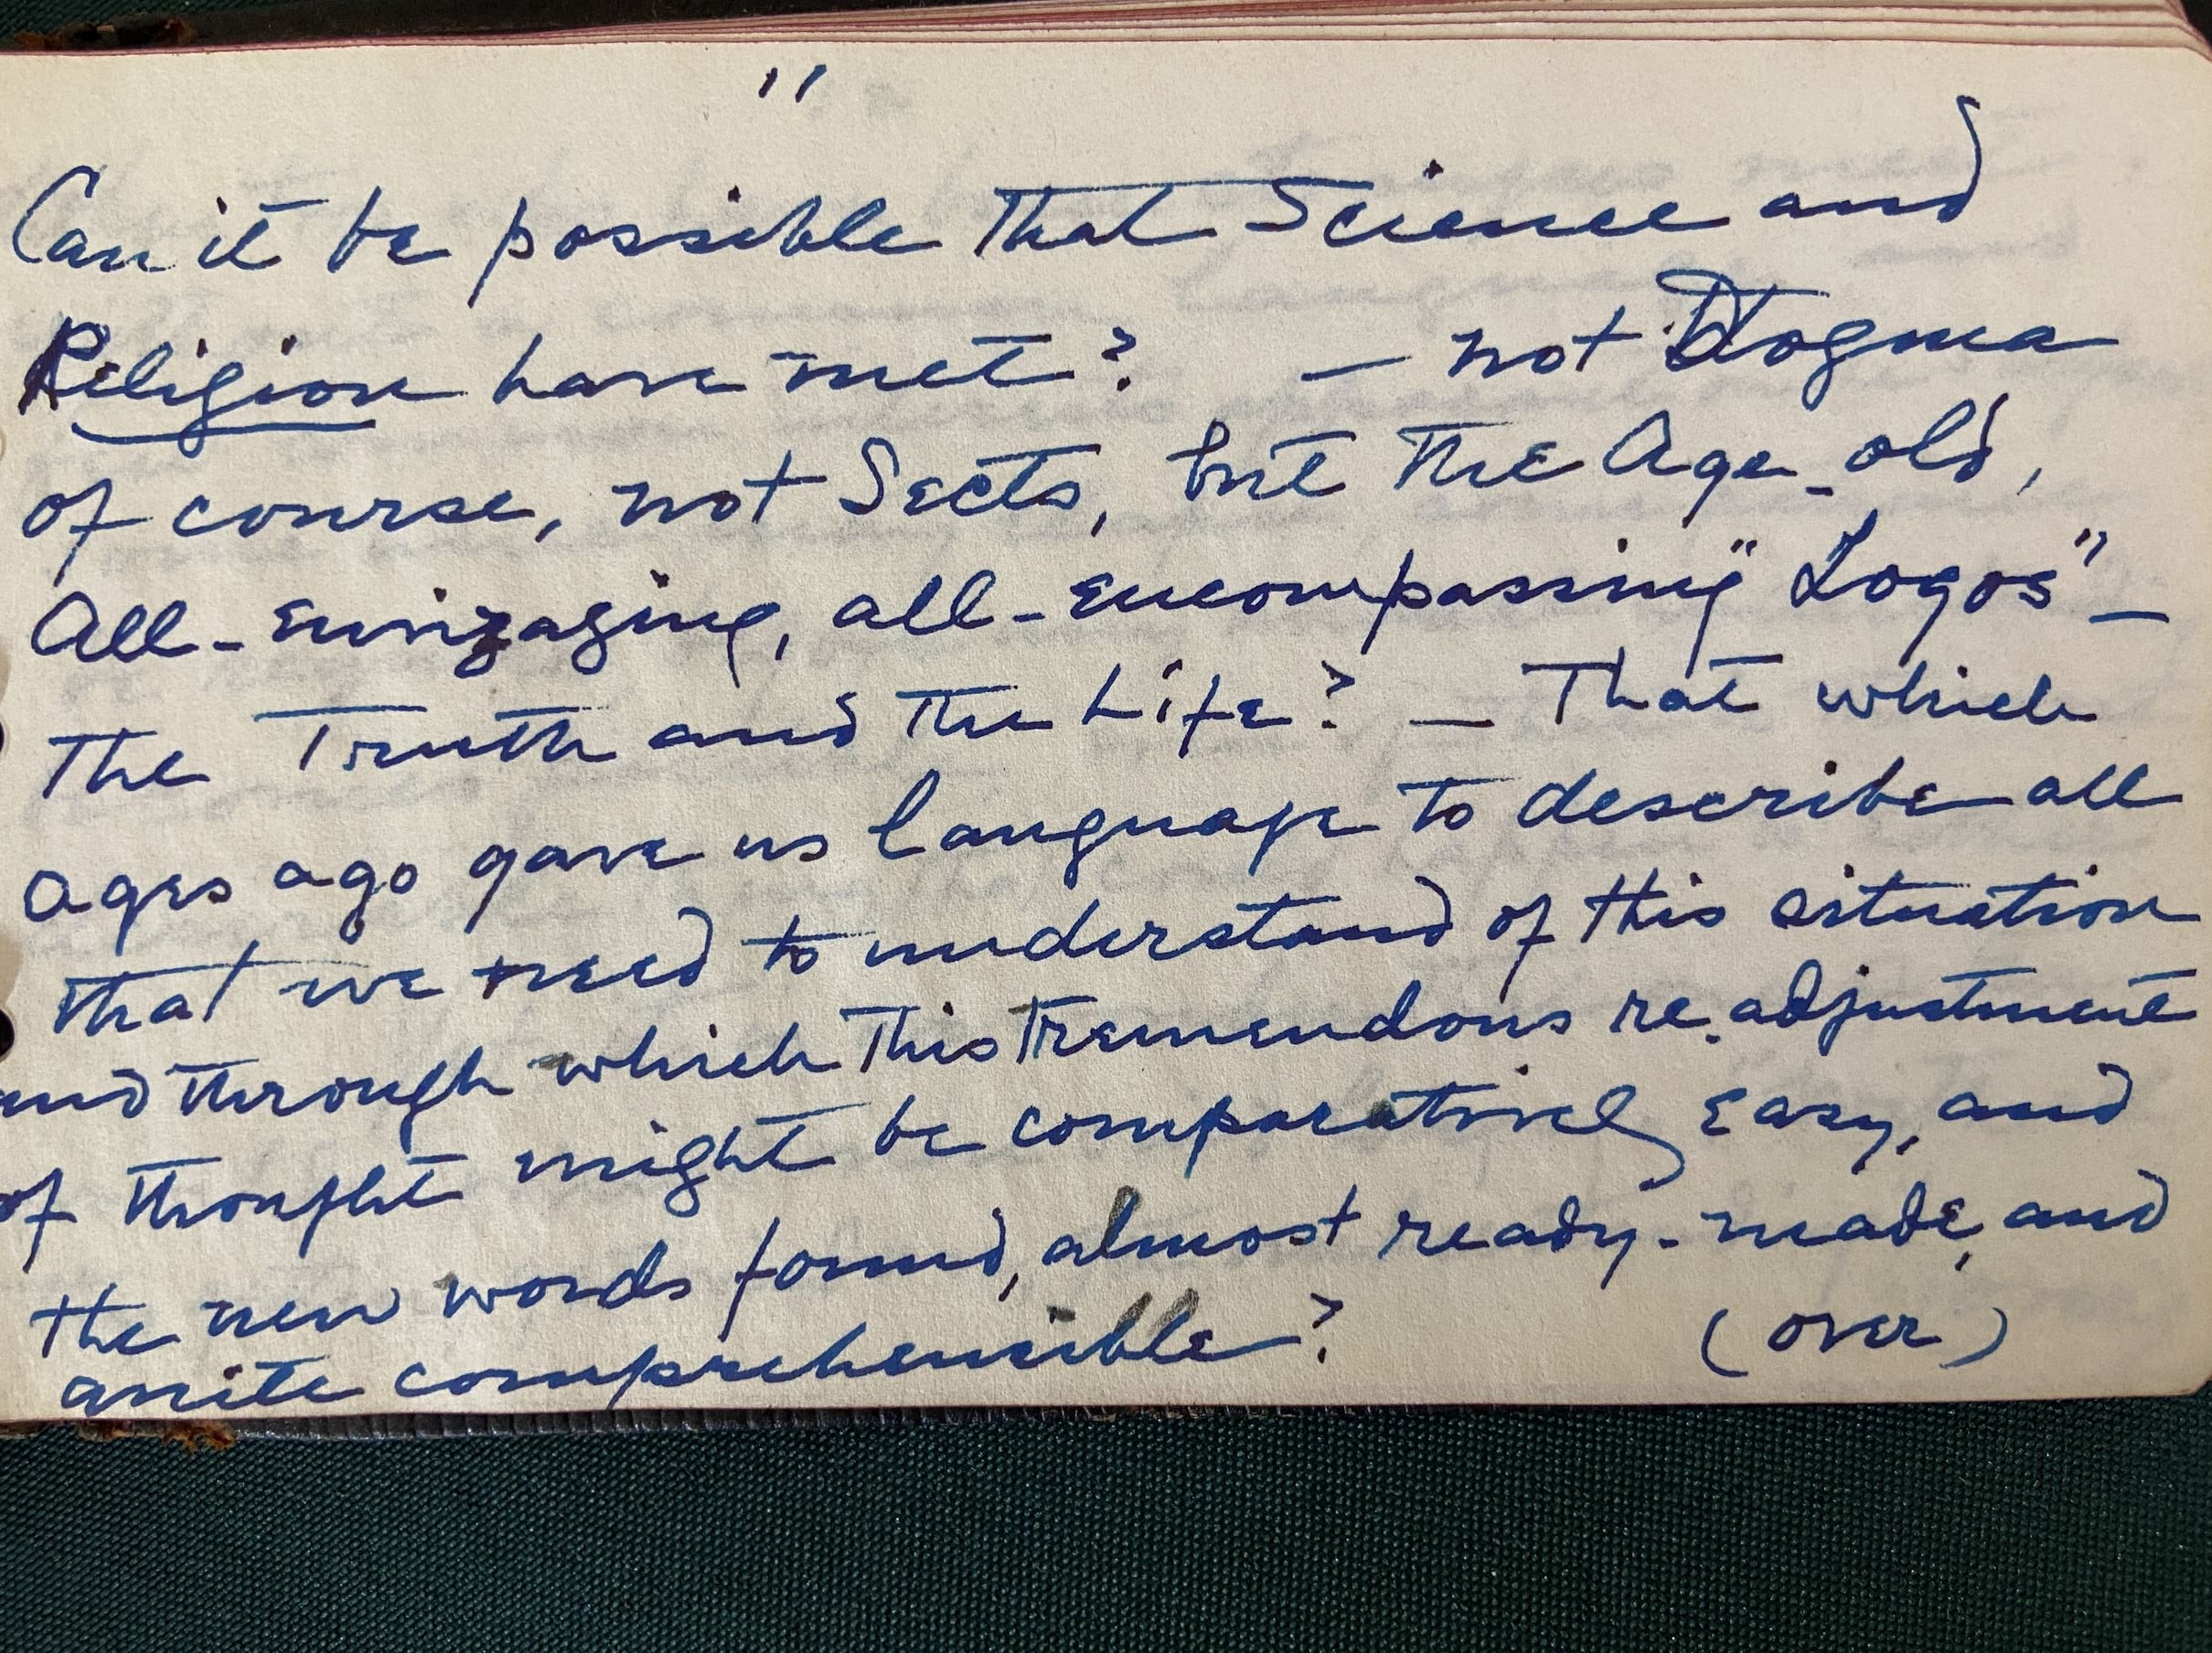 11
Can it be possible that Science and
Religion have met? — not Dogma
of course, not Sects, but the Age-old,
All-envizaging, all-encompassing "Logos" —
The Truth and the Life? — That which
ages ago gave us language to describe all
that we need to understand of this situation
and through which this tremendous re-adjustment
of thought might be comparatively easy, and
the new words found, almost ready-made, and
quite comprehensible? (over)